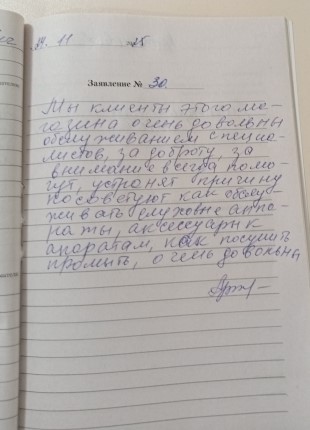 29. 11 2025
Заявление № 30
Мы клиенты этого ма-
газина очень довольны
обслуживанием специа-
листов, за доброту, за
внимание всегда помо-
гут, устронят причину
посоветуют как обслу-
живать слуховые аппа-
раты, аксессуары к
апоратам, как посушить
промыть, очень довольна